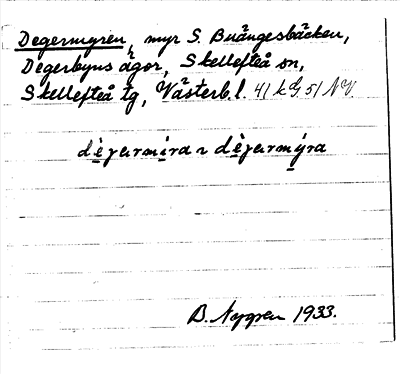 Degermyren, myr S. Buängesbäcken,
Degerbyns ägor, Skellefteå sn,
Skellefteå tg, Västerb. l. 41 k G 51 NV.
dègərmira ~ dègərmýra
B. Nygren 1933.